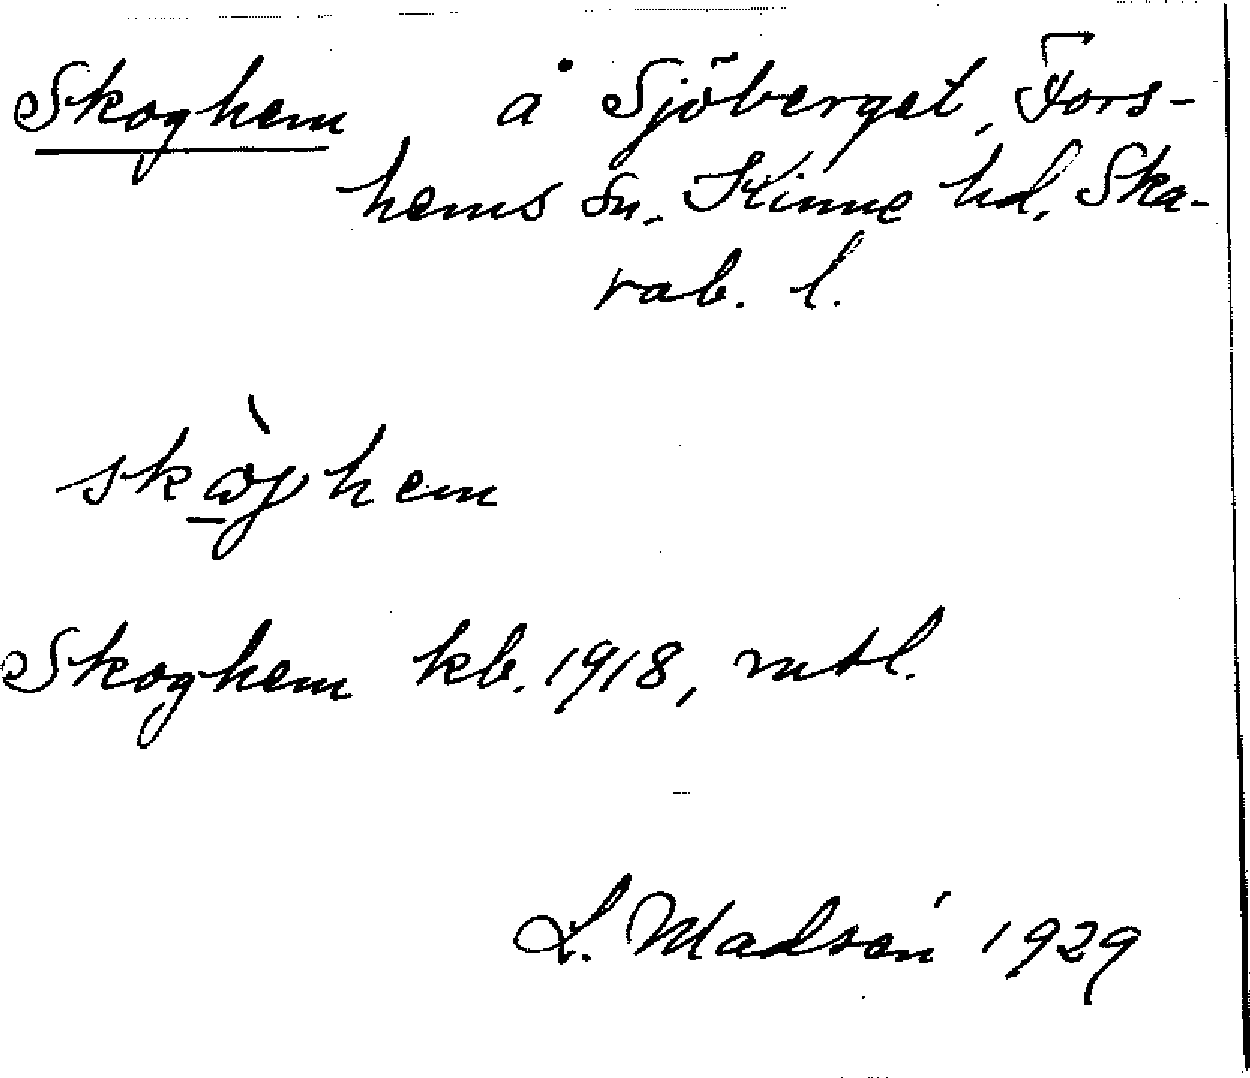 Skoghem å Sjöberget, Fors-
hems sn. Kinne hd, Ska-
rab. l.
skὼghem
Skoghem kb. 1918, mtl.
L. Madsén 1929